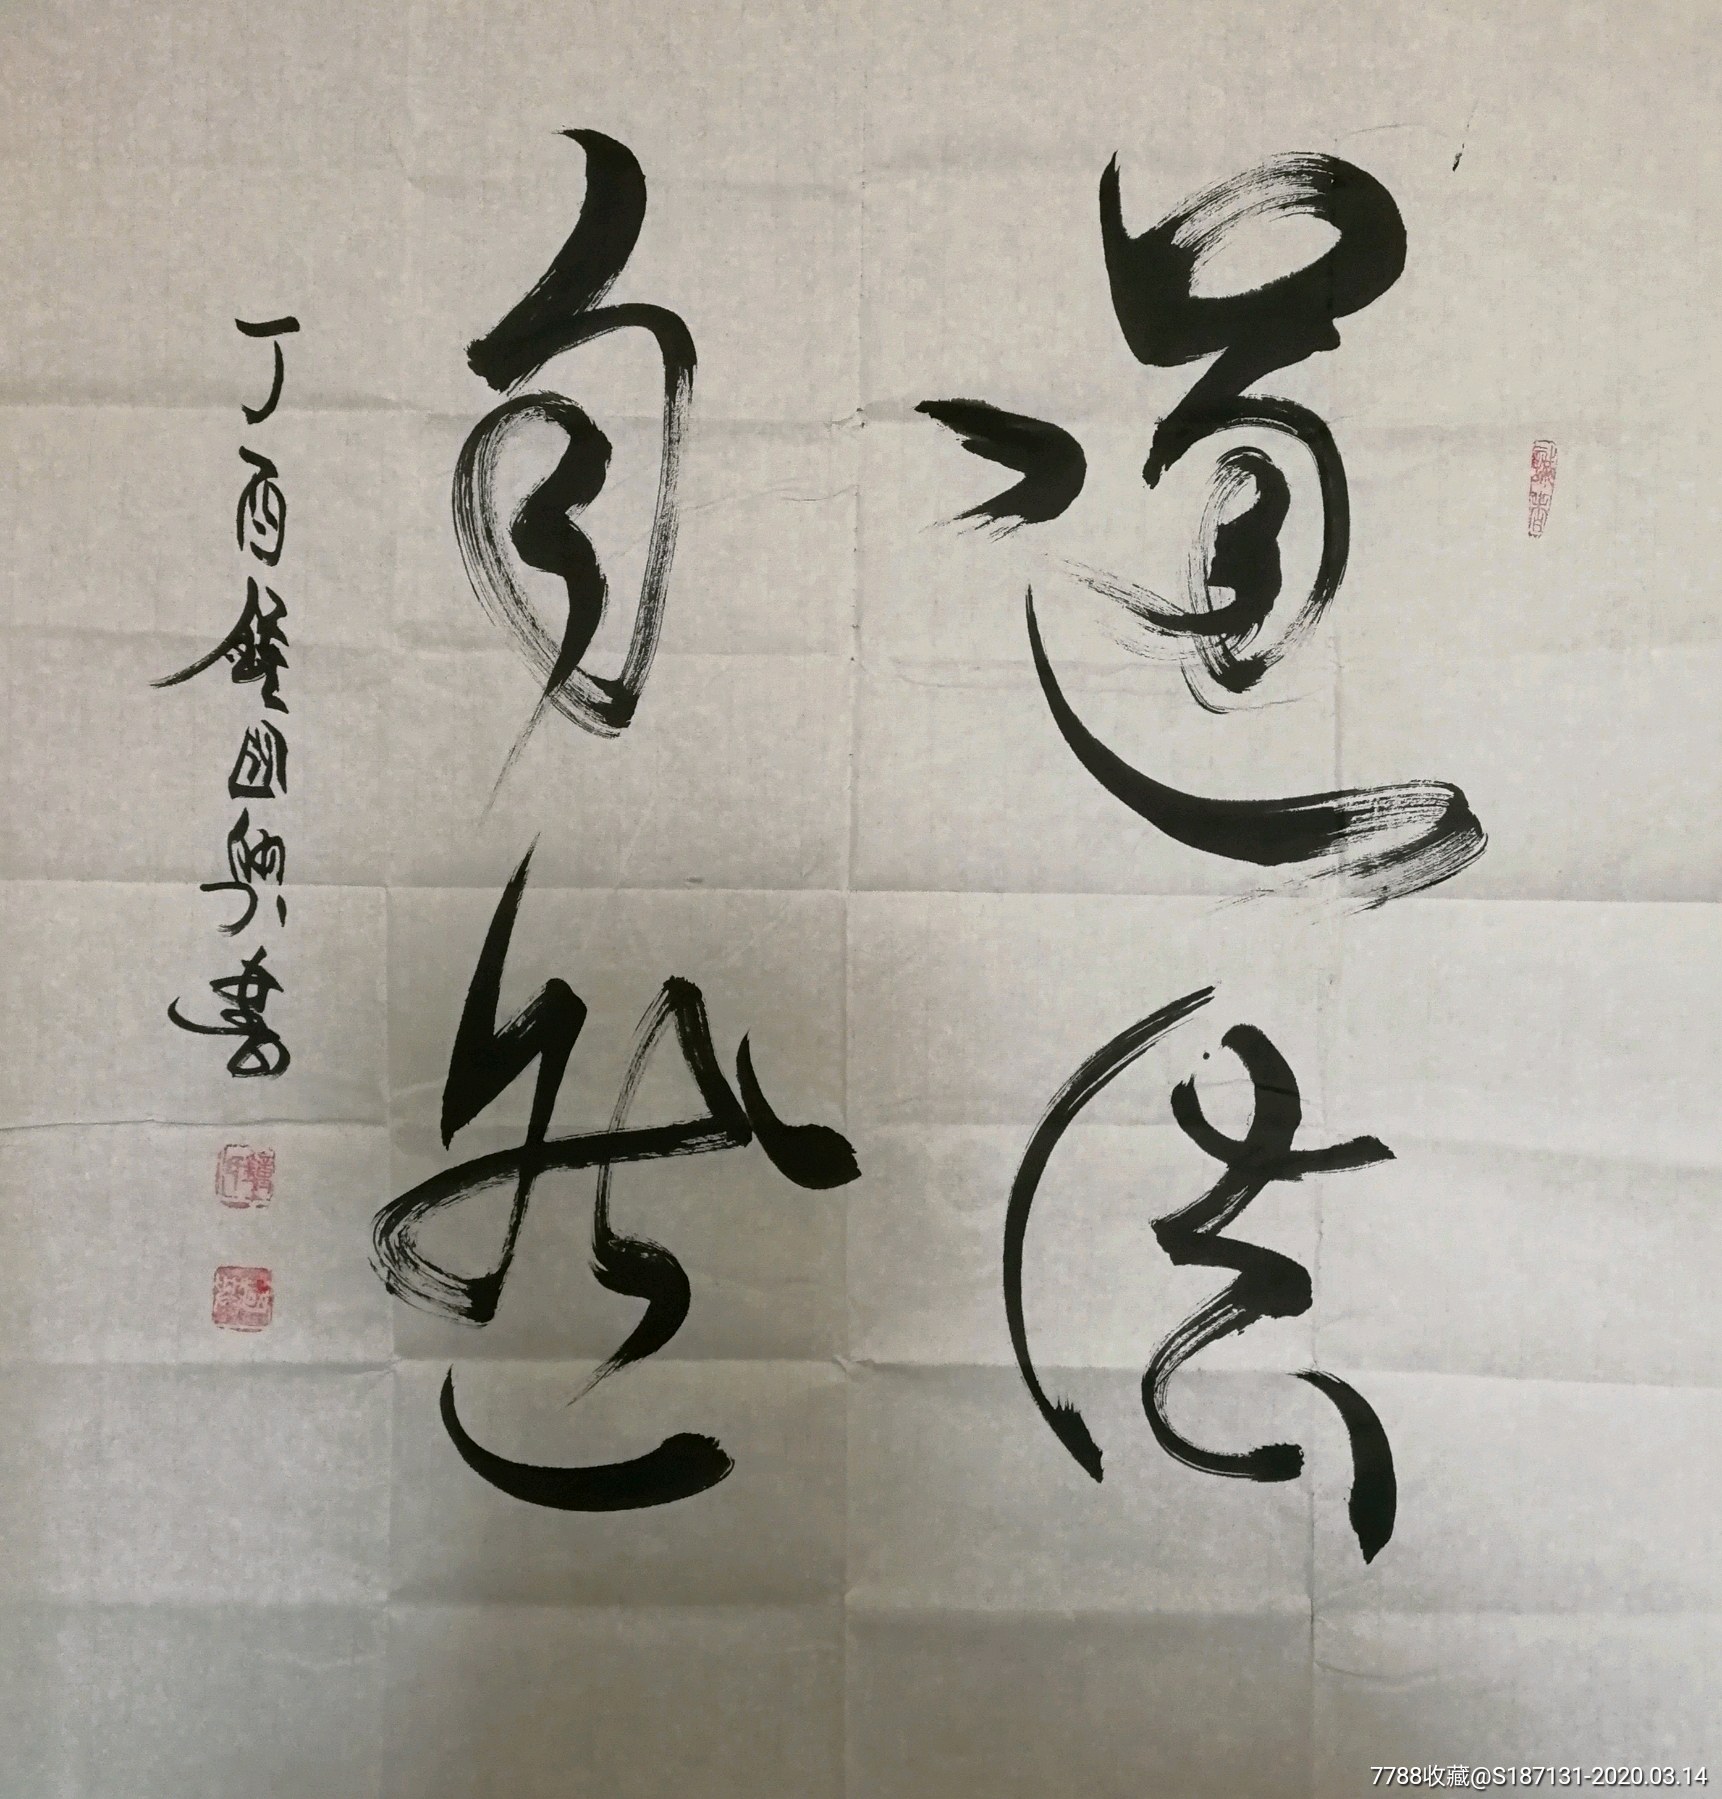 道法
自然
丁酉鐘国興書
7788收藏@S187131-2020.03.14